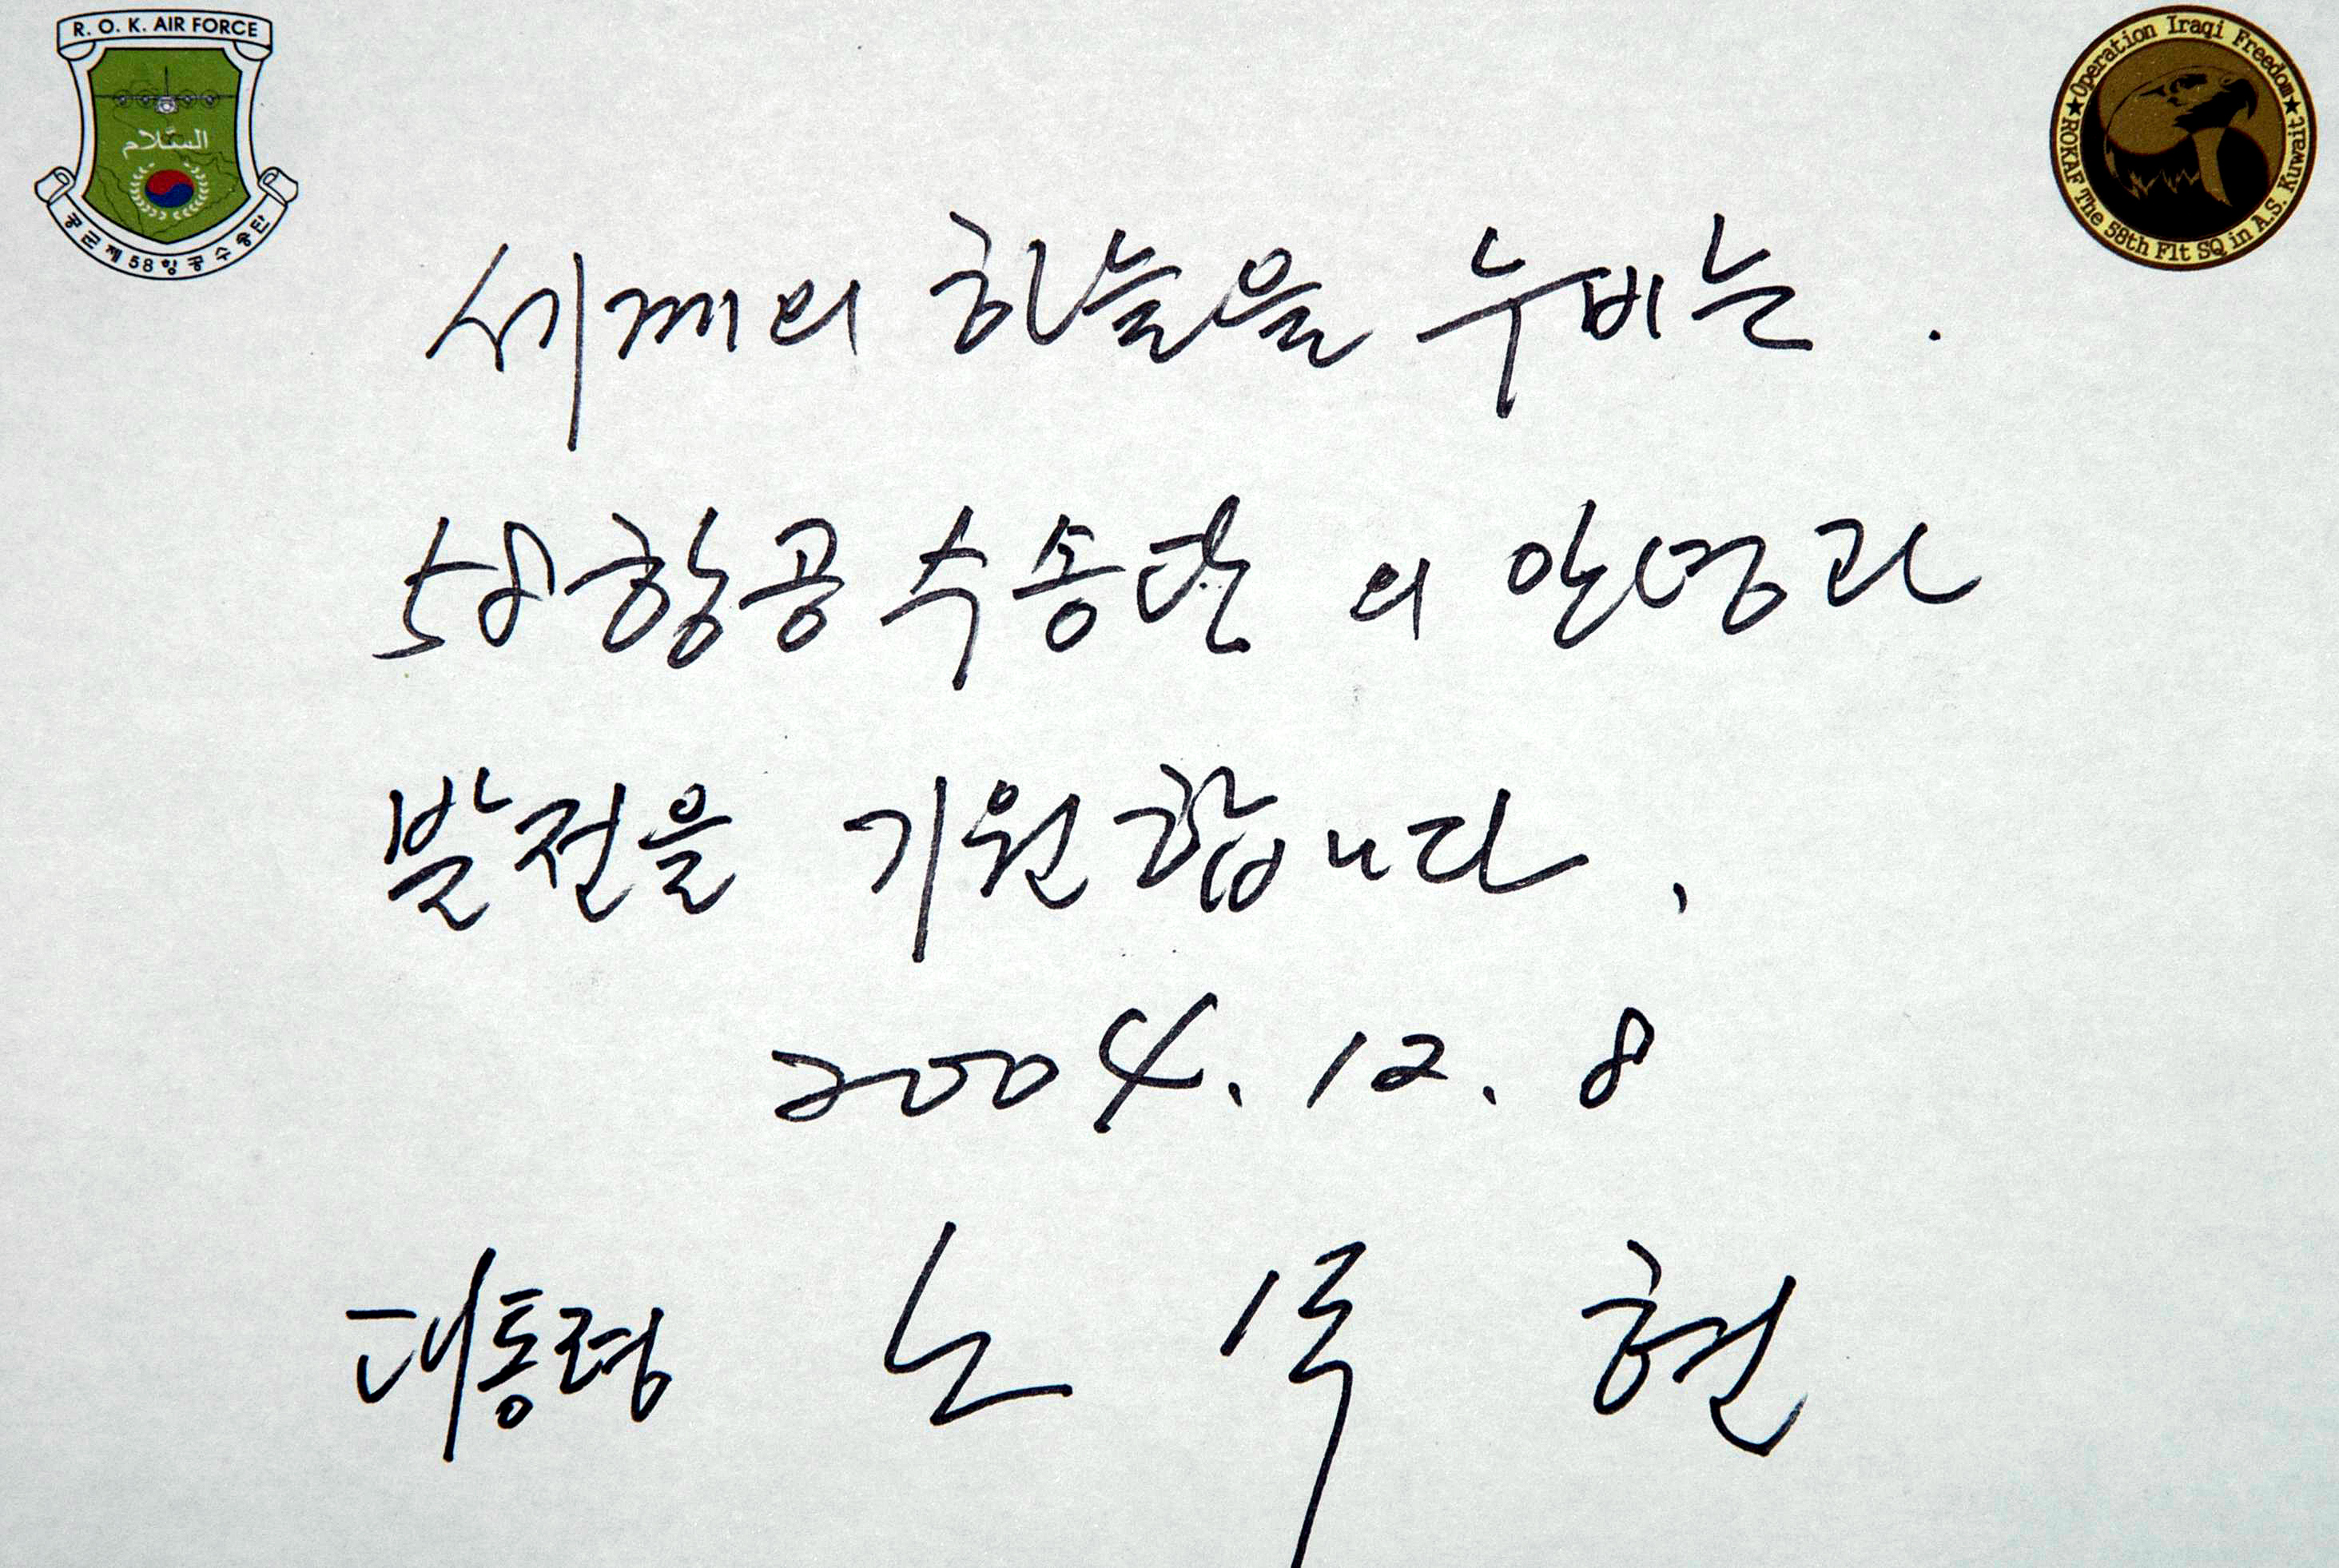 R. O. K. AIR FORCE
السّلام
공군제58항공수송단
★Operation Iraqi Freedom★
ROKAF The 58th Flt SQ in A.S. Kuwait
세계의 하늘을 누비는.
58항공수송단의 안녕과
발전을 기원합니다.
2004. 12. 8
대통령 노무현